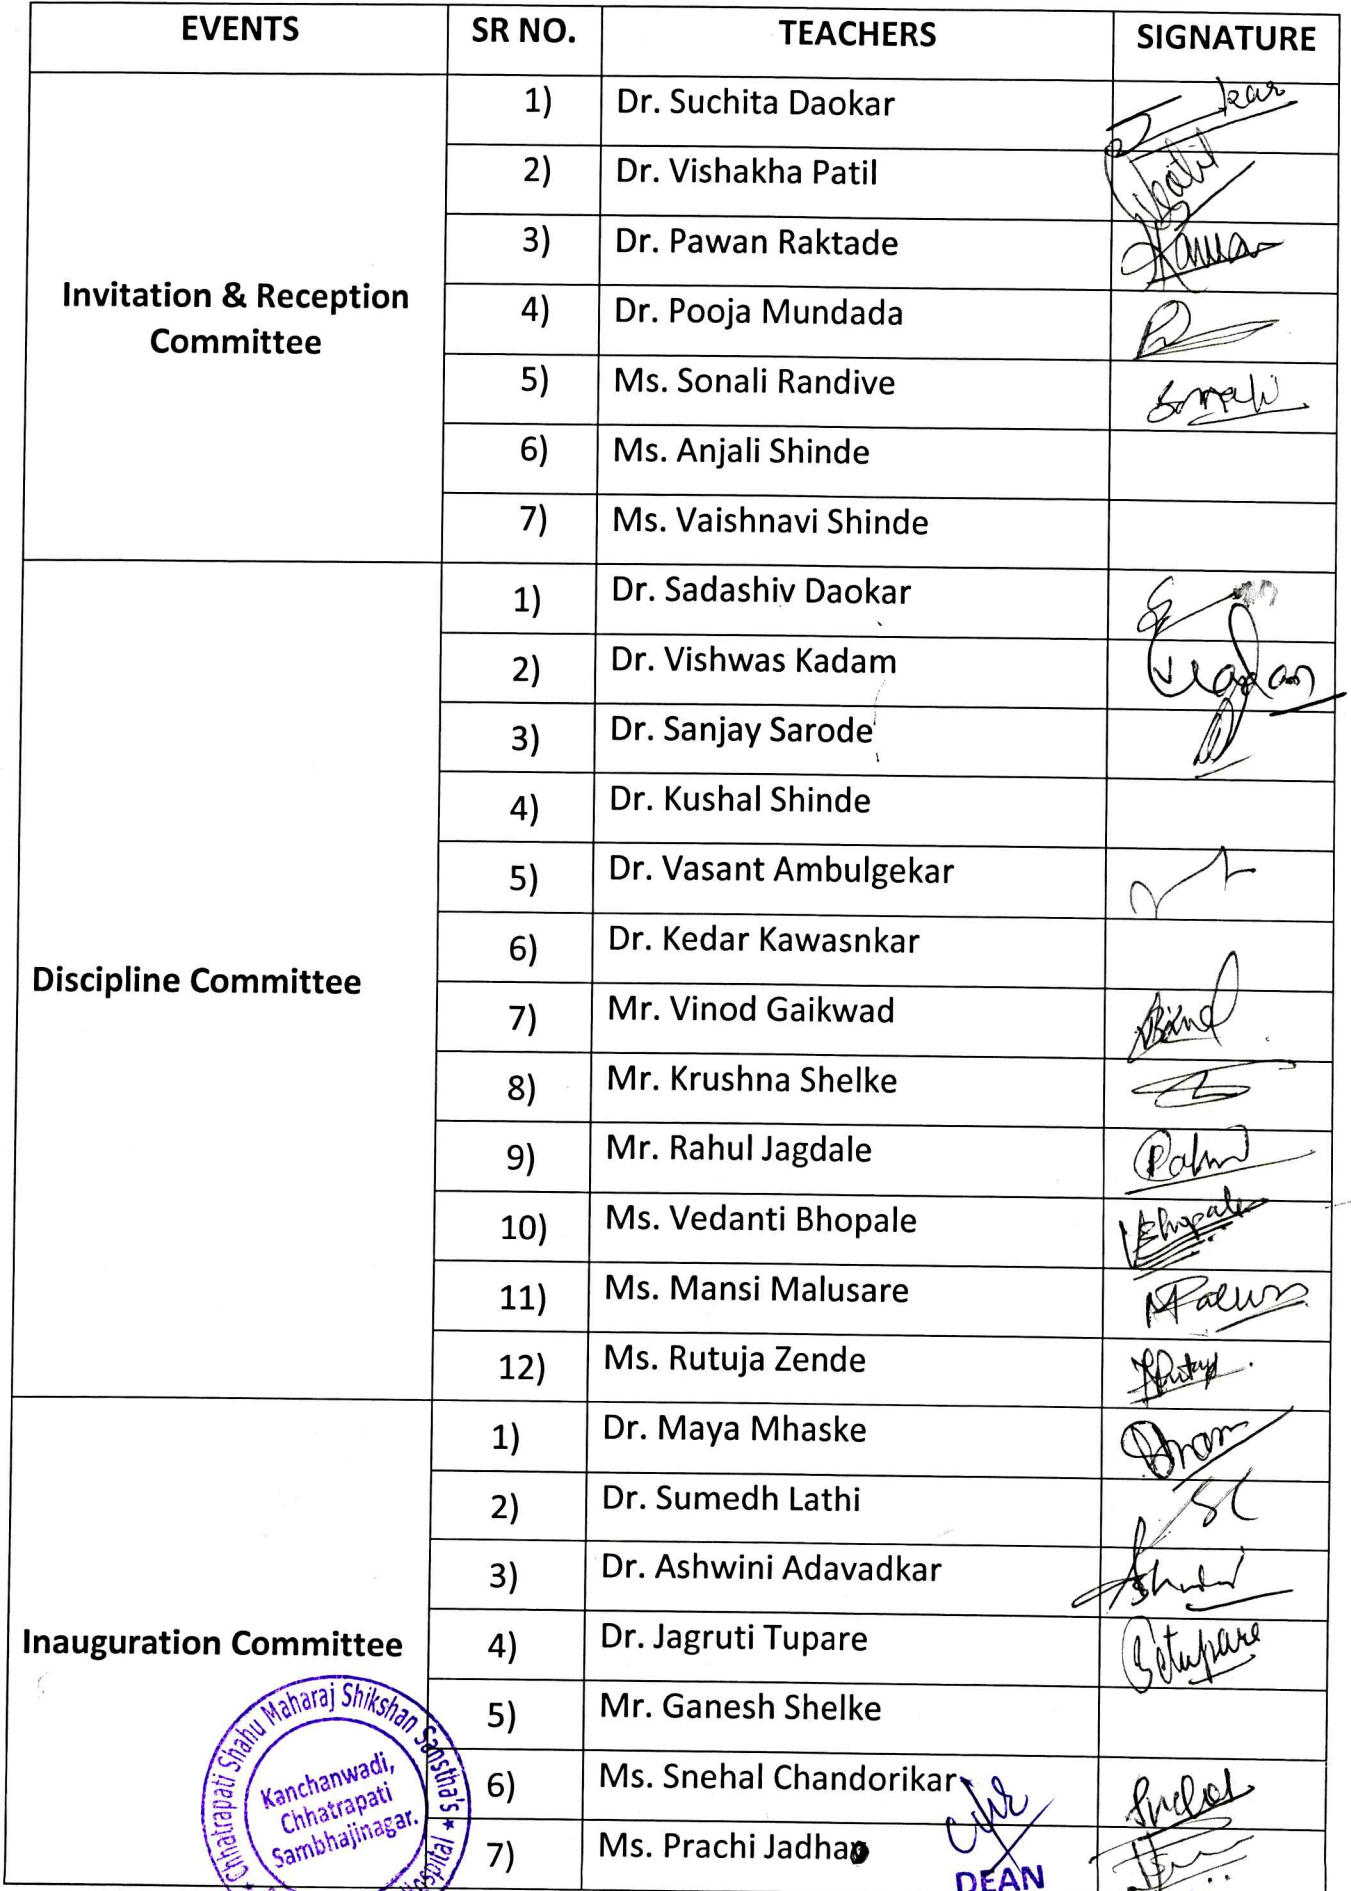 EVENTS SR NO. TEACHERS SIGNATURE
Invitation & Reception
Committee
1) Dr. Suchita Daokar
2) Dr. Vishakha Patil
3) Dr. Pawan Raktade
4) Dr. Pooja Mundada
5) Ms. Sonali Randive Sonali
6) Ms. Anjali Shinde
7) Ms. Vaishnavi Shinde
Discipline Committee
1) Dr. Sadashiv Daokar
2) Dr. Vishwas Kadam
3) Dr. Sanjay Sarode
4) Dr. Kushal Shinde
5) Dr. Vasant Ambulgekar
6) Dr. Kedar Kawasnkar
7) Mr. Vinod Gaikwad
8) Mr. Krushna Shelke
9) Mr. Rahul Jagdale
10) Ms. Vedanti Bhopale
11) Ms. Mansi Malusare
12) Ms. Rutuja Zende
Inauguration Committee
1) Dr. Maya Mhaske
2) Dr. Sumedh Lathi
3) Dr. Ashwini Adavadkar
4) Dr. Jagruti Tupare
5) Mr. Ganesh Shelke
6) Ms. Snehal Chandorikar
7) Ms. Prachi Jadhav
Chhatrapati Shahu Maharaj Shikshan Sanstha's
Kanchanwadi,
Chhatrapati
Sambhajinagar.
DEAN